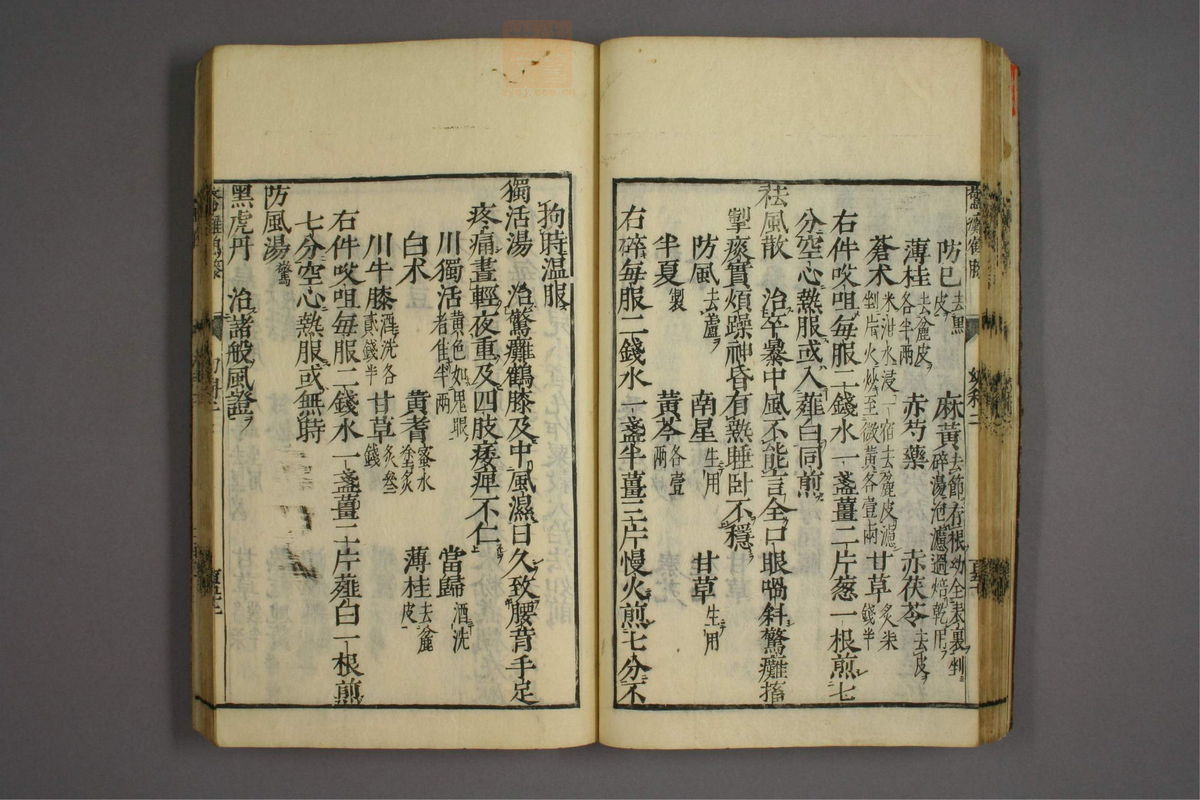 防已去黑皮 麻黃去節存根劬全表裏剉碎湯泡濾過焙乾用
薄桂去麄皮各半兩 赤芍藥 赤茯苓去皮
蒼术米泔水浸一宿去麄皮濾剉片火炒至微黃各壹兩 甘草炙柒錢半
右件㕮咀每服二錢水一盞薑二片葱一根煎七
分空心熱服或入薤白同煎
祛風散 治卒暴中風不能言全口眼喎斜驚癱搐
掣痰實煩躁神昏有熱睡卧不穩
防風去蘆 南星生用 甘草生用
半夏製 黃芩各壹兩
右碎每服二錢水一盞半薑三片慢火煎七分不
拘時温服
獨活湯 治驚癱鶴膝及中風濕日久致腰背手足
疼痛晝輕夜重及四肢痿痺不仁
川獨活黃色如鬼眼者佳半兩 當歸酒洗
白术 黃耆蜜水塗炙 薄桂去麄皮
川牛膝酒洗各貳錢半 甘草炙叁錢
右件㕮咀每服二錢水一盞薑二片薤白一根煎
七分空心熱服或無時
防風湯驚
黑虎丹 治諸般風證